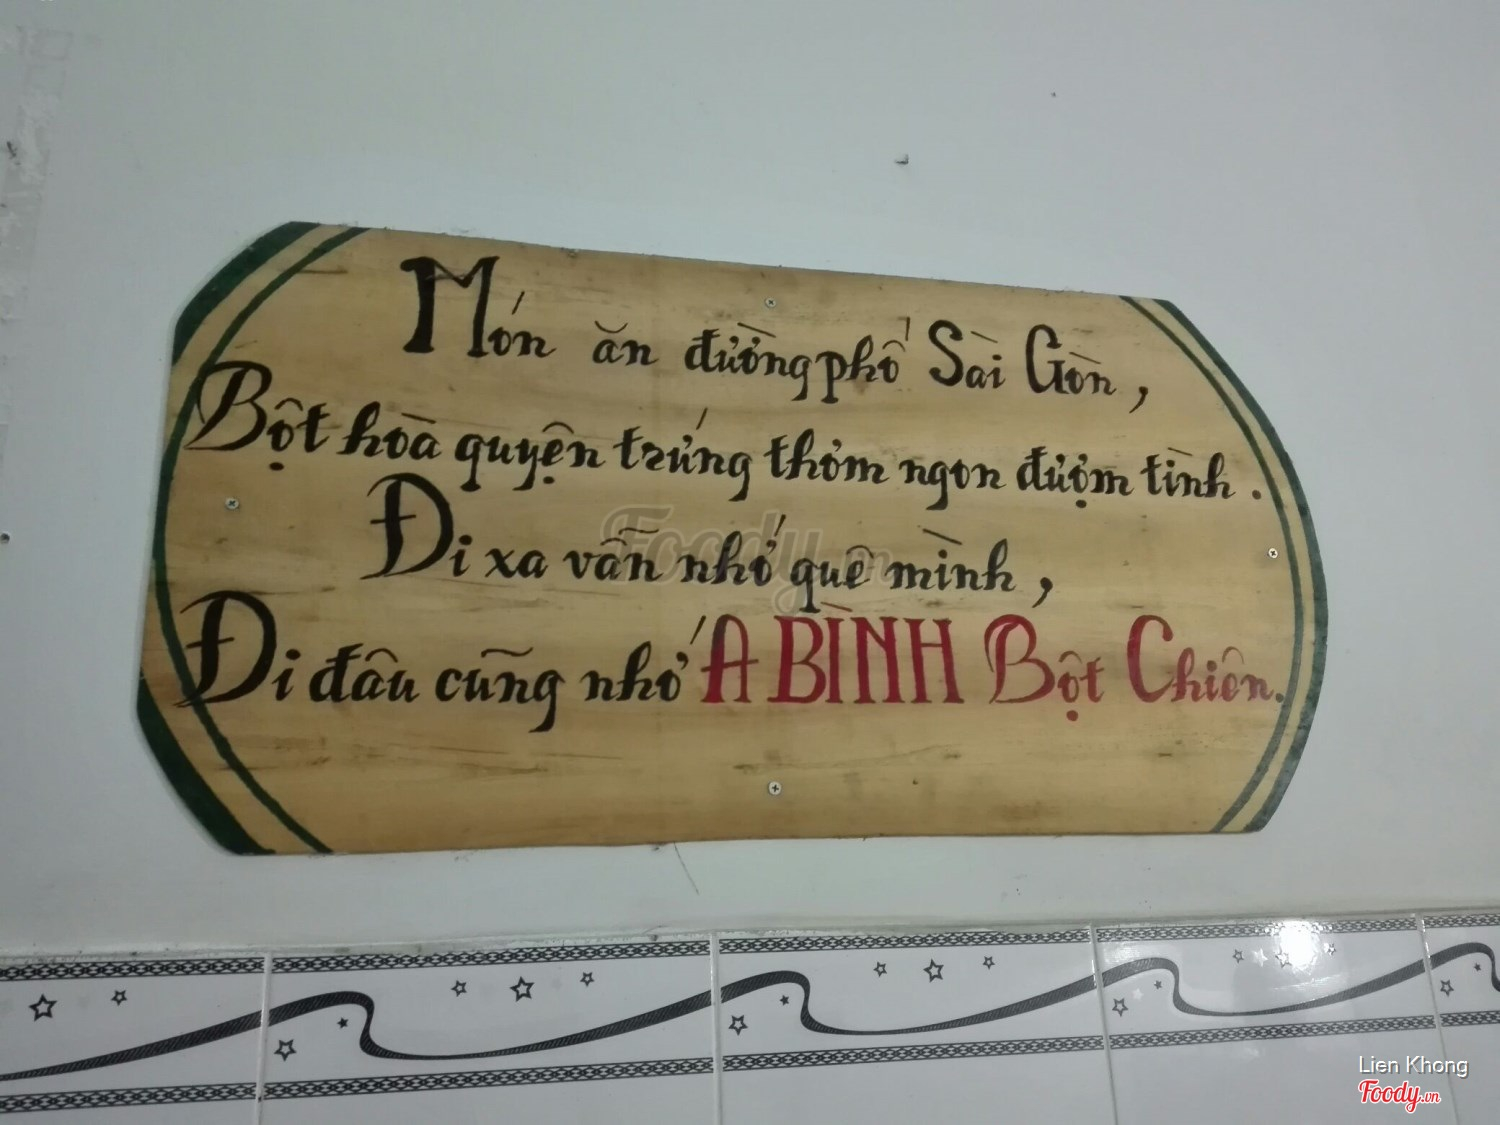 Món ăn đường phố Sài Gòn,
Bột hoà quyện trứng thơm ngon đượm tình.
Đi xa vẫn nhớ quê mình,
Đi đâu cũng nhớ A BÌNH Bột Chiên.
Foody.vn
Lien Khong
Foody.vn